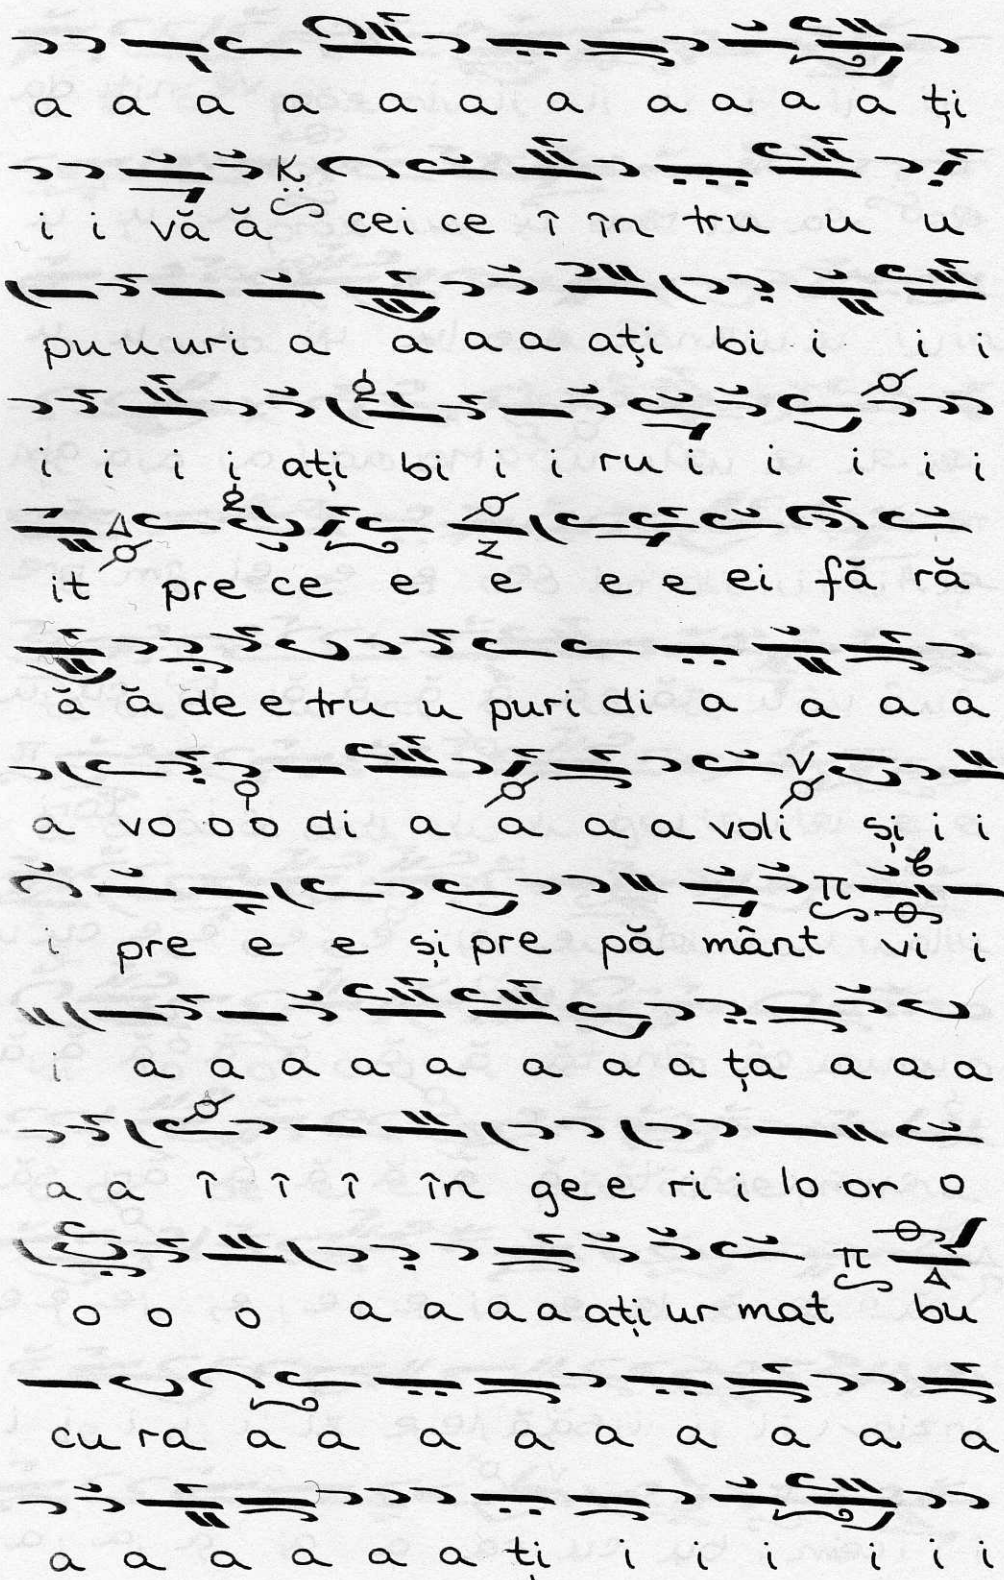 a a a a a a a a a a a ți
i i vă ă cei ce î în tru u u
pu u uri a a a a ați bi i i i
i i i i ați bi i i ru i i i i i
it pre ce e e e e ei fă ră
ă ă de e tru u puri di a a a a
a vo o o di a a a a voli și i i
i pre e e și pre pă mânt vi i
i a a a a a a a a ța a a a
a a î î î în ge e ri i lo or o
o o o a a a a ați ur mat bu
cu ra a a a a a a a a a
a a a a a a ți i i i i i i